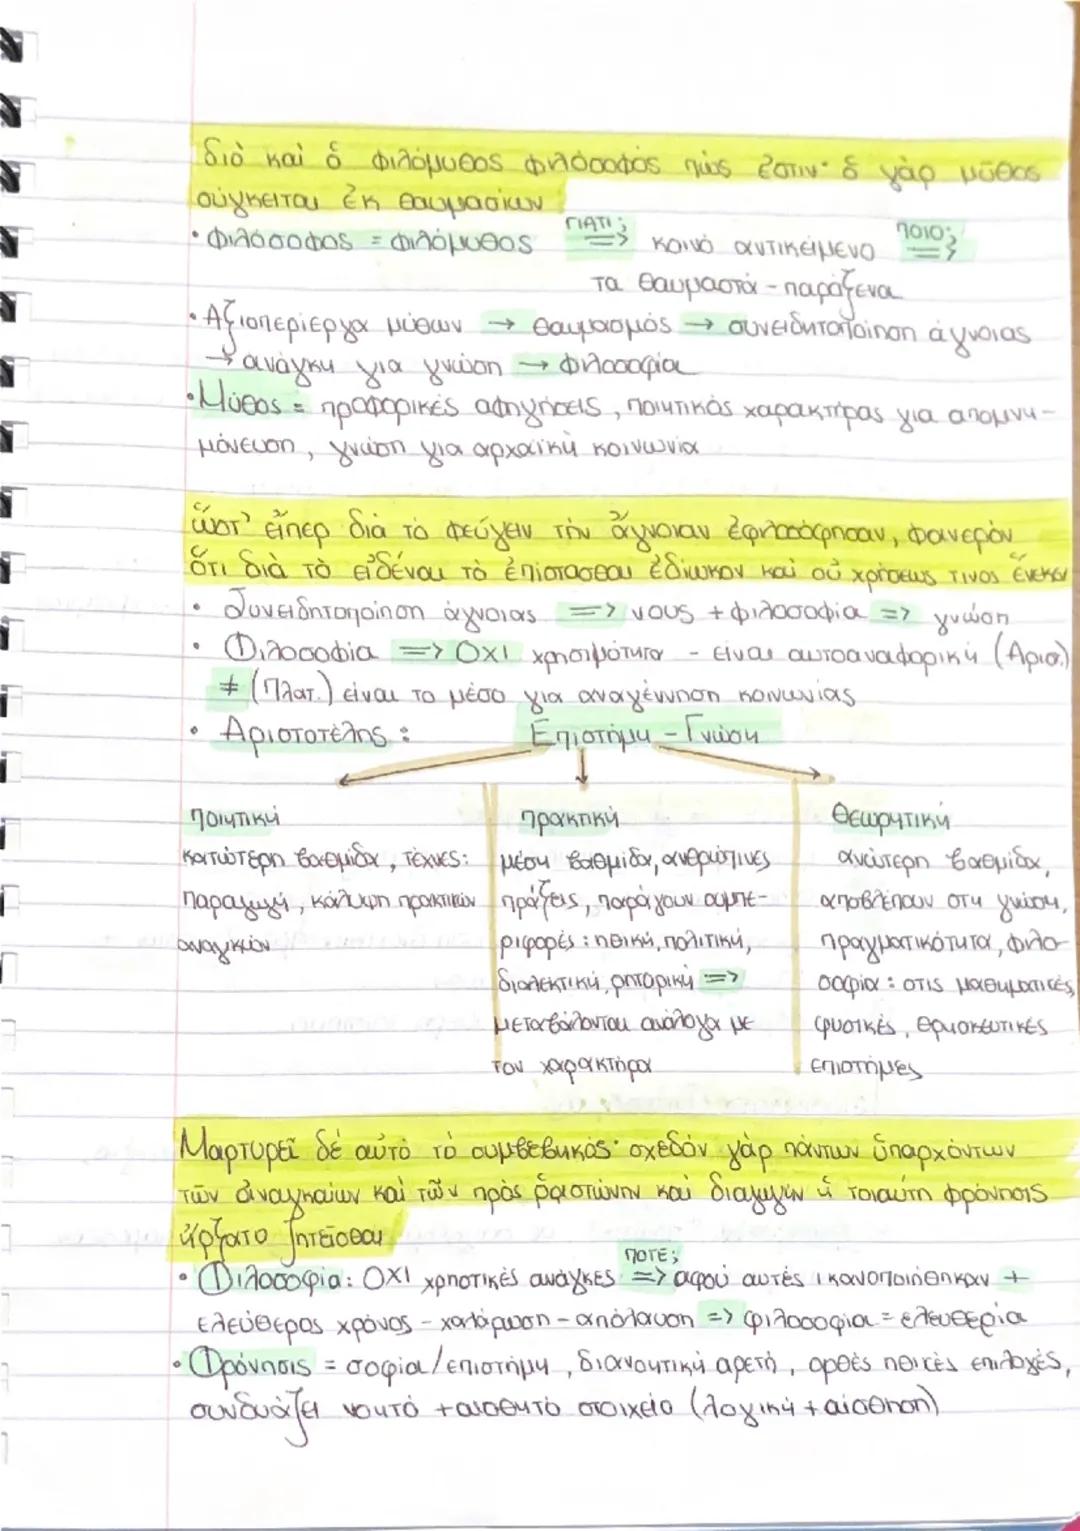 διὸ καὶ ὁ φιλόμυθος φιλόσοφός πώς ἐστιν· ὁ γὰρ μῦθος
σύγκειται ἐκ θαυμασίων
• Φιλόσοφος = φιλόμυθος ΓΙΑΤΙ; => κοινό αντικείμενο ΠΟΙΟ; =>
τα θαυμαστά - παράξενα
• Αξιοπερίεργα μύθων → θαυμασμός → συνειδητοποίηση άγνοιας
→ ανάγκη για γνώση → φιλοσοφία
• Μύθος = προφορικές αφηγήσεις, ποιητικός χαρακτήρας για απομνη-
μόνευση, γνώση για αρχαϊκή κοινωνία
ὥστ' εἴπερ διὰ τὸ φεύγειν τὴν ἄγνοιαν ἐφιλοσόφησαν, φανερὸν
ὅτι διὰ τὸ εἰδέναι τὸ ἐπίστασθαι ἐδίωκον καὶ οὐ χρήσεώς τινος ἕνεκεν
• Συνειδητοποίηση άγνοιας => νους + φιλοσοφία => γνώση
• Φιλοσοφία => ΟΧΙ χρησιμότητα - είναι αυτοαναφορική (Αρισ.)
≠ (Πλατ.) είναι το μέσο για αναγέννηση κοινωνίας
• Αριστοτέλης : Επιστήμη - Γνώση
ποιητική πρακτική θεωρητική
κατώτερη βαθμίδα, τέχνες: μέση βαθμίδα, ανθρώπινες ανώτερη βαθμίδα,
παραγωγή, κάλυψη πρακτικών πράξεις, παράγουν συμπε- αποβλέπουν στη γνώση,
αναγκών ριφορές : ηθική, πολιτική, πραγματικότητα, φιλο-
διαλεκτική, ρητορική => σοφία : στις μαθηματικές,
μεταβάλλονται ανάλογα με φυσικές, θρησκευτικές
τον χαρακτήρα επιστήμες
Μαρτυρεῖ δὲ αὐτὸ τὸ συμβεβηκός· σχεδὸν γὰρ πάντων ὑπαρχόντων
τῶν ἀναγκαίων καὶ τῶν πρὸς ῥᾳστώνην καὶ διαγωγὴν ἡ τοιαύτη φρόνησις
ἤρξατο ζητεῖσθαι
• Φιλοσοφία: ΟΧΙ χρηστικές ανάγκες ΠΟΤΕ; => αφού αυτές ικανοποιήθηκαν +
ελεύθερος χρόνος - χαλάρωση - απόλαυση => φιλοσοφία = ελευθερία
• Φρόνησις = σοφία/επιστήμη, διανοητική αρετή, ορθές ηθικές επιλογές,
συνδυάζει νοητό + αισθητό στοιχείο (λογική + αίσθηση)